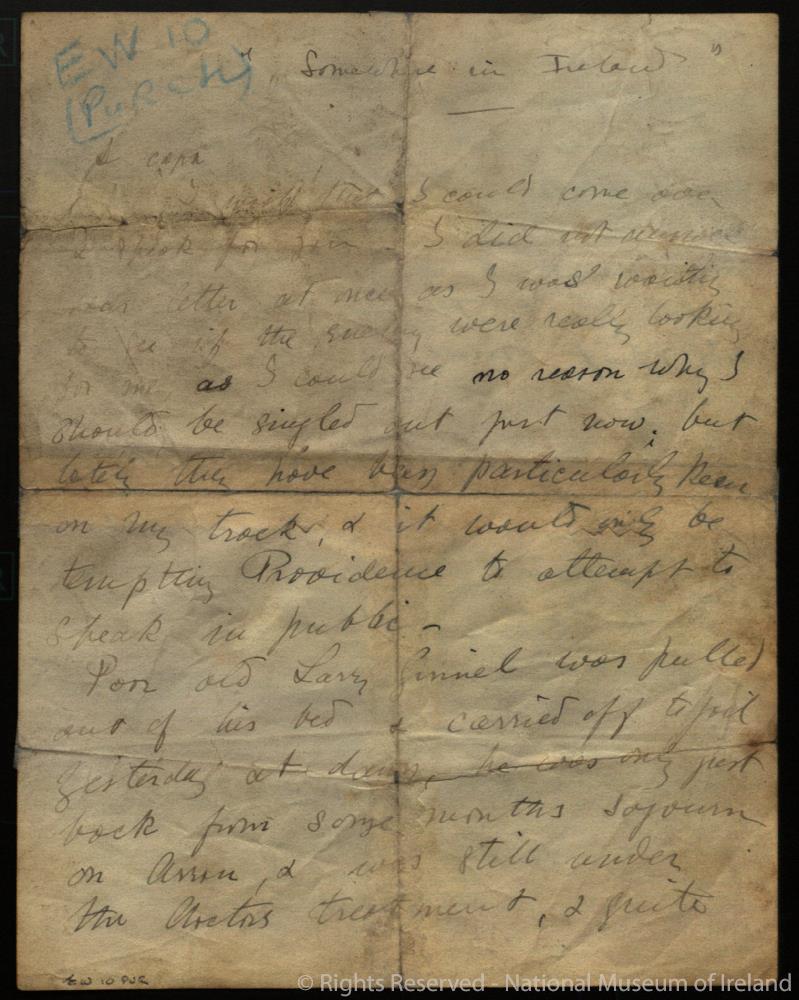 EW 10
(PURCH)
"Somewhere in Ireland"
A cara
I wish that I could come over
& speak for you. I did not answer
your letter at once as I was waiting
to see if the enemy were really looking
for me as I could see no reason why I
should be singled out just now, but
lately they have been particularly keen
on my track, & it would only be
tempting Providence to attempt to
speak in public –
Poor old Larry Ginnel was pulled
out of his bed & carried off to jail
yesterday at dawn, he was only just
back from some months sojourn
on Arran, & was still under
the doctors treatment, & quite
EW 10 PUR
© Rights Reserved - National Museum of Ireland